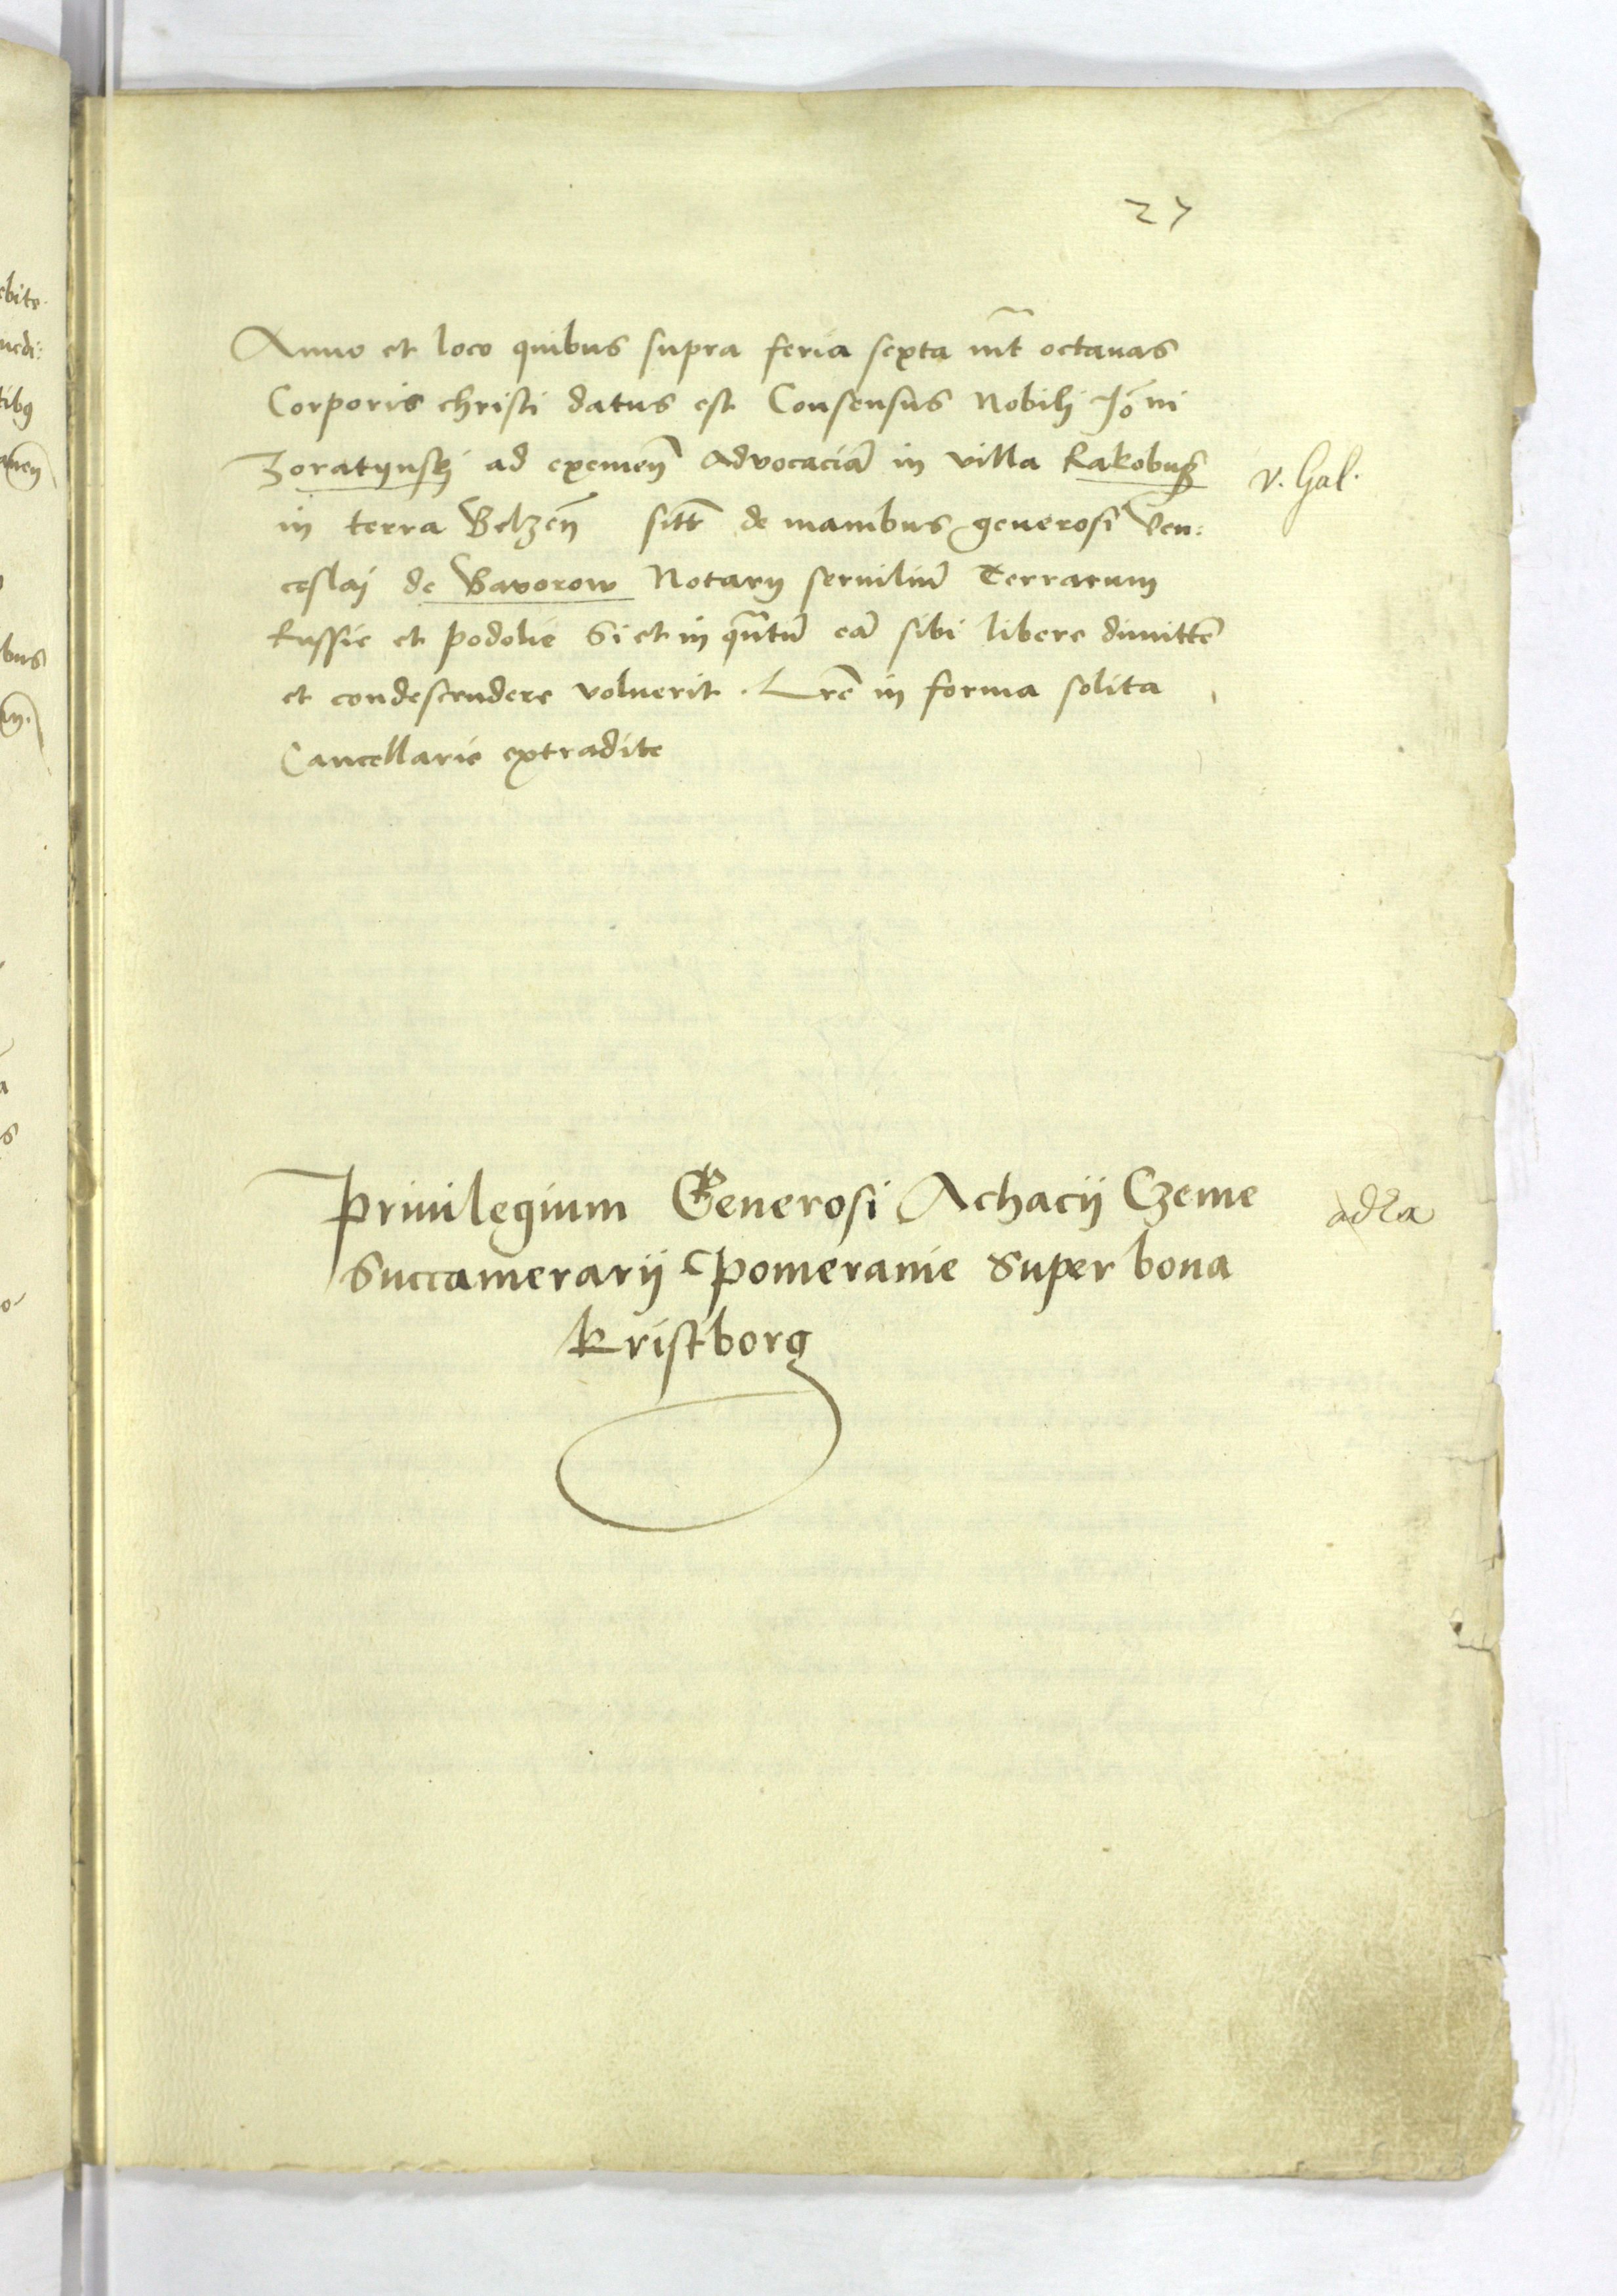 27
Anno et loco quibus supra feria sexta infrꝰ octauas
Corporis christi datus est Consensus Nobili Joni
Zoratynskj ad exemen̄ Advocaciā in villa Rakobuß
v. Hal.
in terra Belzen̄ sitā de manibus generosi Ven:
ceslaj de Bavorow Notarij serviliū Terrarum
Russie et podolie Si et in qūtū eā sibi libere dimitte͂
et condescendere voluerit. Lrē in forma solita
Cancellarie extradite
Priuilegium Generosi Achacij Czeme
Succamerarij Pomeranie super bona
Kristborg